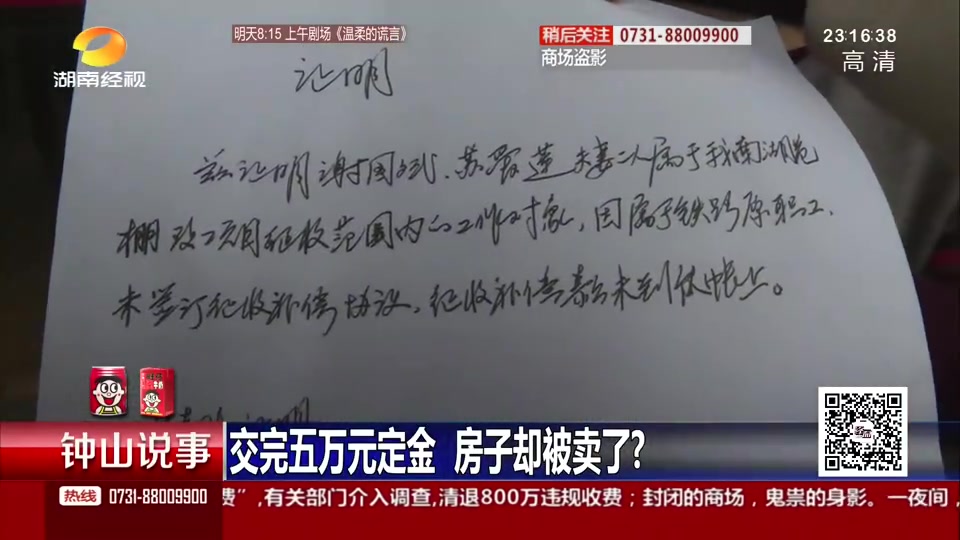 明天8:15 上午剧场《温柔的谎言》
稍后关注 0731-88009900
商场盗影
23:16:38
高清
湖南经视
证明
兹证明谢国武、苏霞莲夫妻二人属于我南湖片
棚改项目征收范围内的工作对象，因属于铁路原职工，
未签订征收补偿协议，征收补偿款未到账上。
证明
钟山说事
交完五万元定金 房子却被卖了？
热线 0731-88009900
费”,有关部门介入调查,清退800万违规收费；封闭的商场，鬼祟的身影。一夜间，